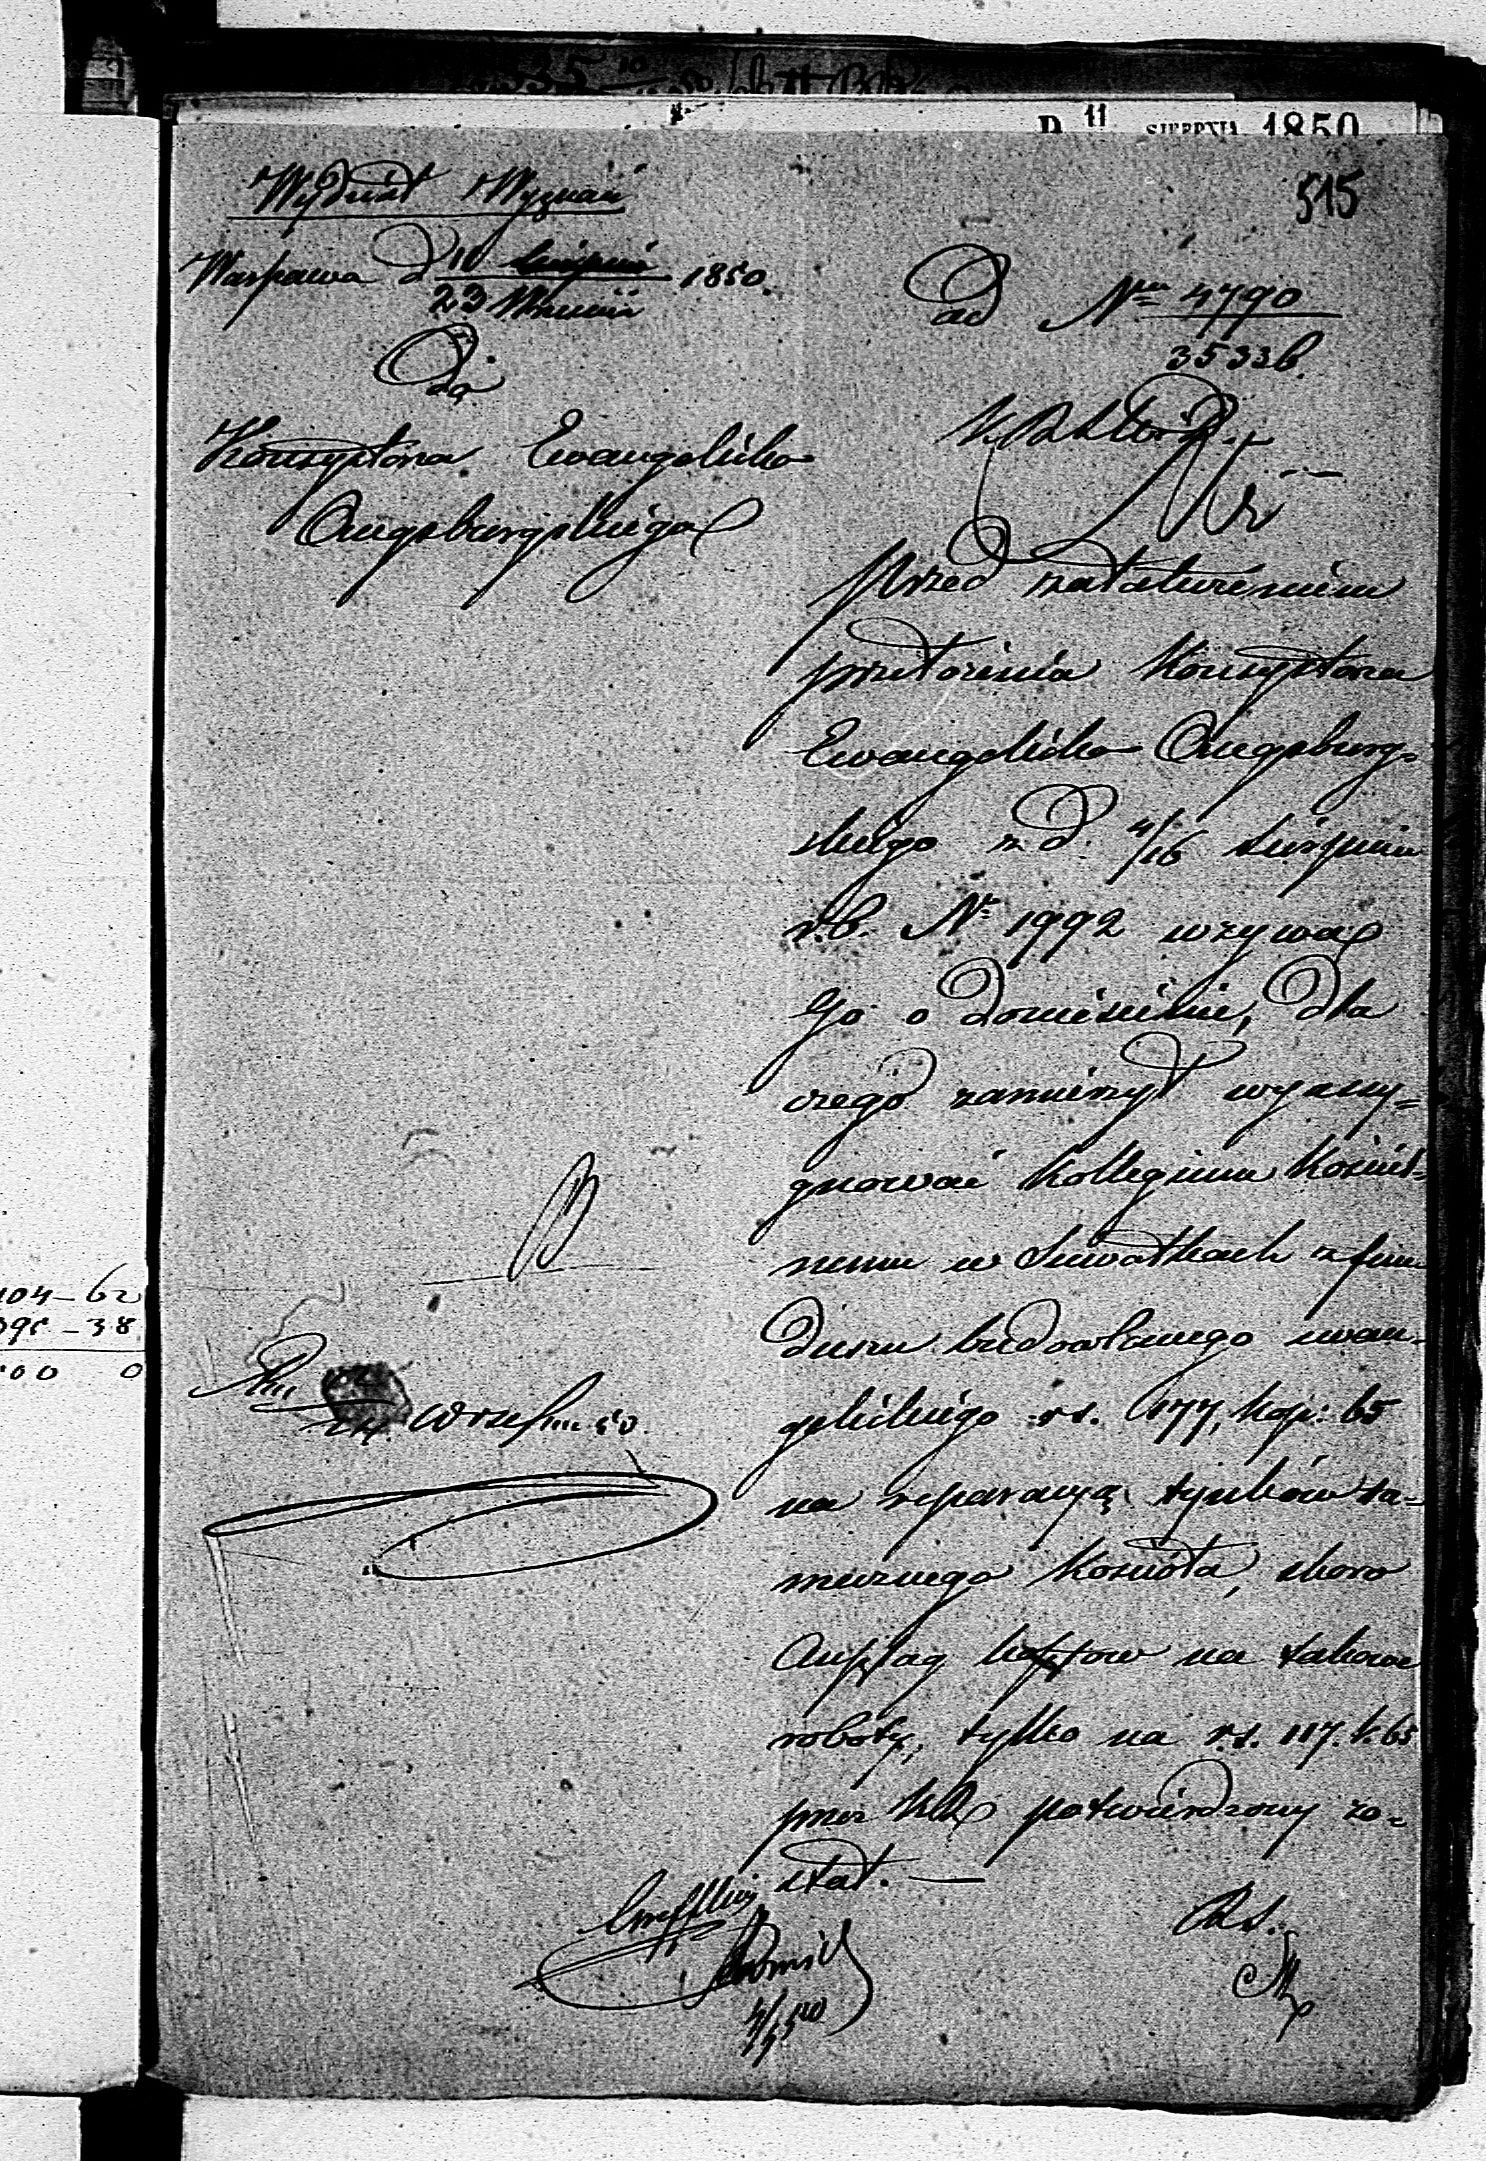 D 11 SIERPNIA 1850
515
Wydział Wyznań
Warszawa d 11 Sierpnia 1850.
23 Wrześni
Do
Konsystorza Ewangelicko
Augsburgskiego
ad Nrm 4790
3533b.
Przed załatwieniem
przełożenia Konsystorza
Ewangelicko Augsburg-
skiego z d. 4/16 Sierpnia
r.b. Nr 1992 wzywa
go o doniesienie, dla
czego zamierzył wyassy=
gnować Kollegium Kościel-
nemu w Suwałkach z fun-
duszu budowlanego ewan-
gelickiego rs. 177, kop: 65
na reparacyą tynków ta-
mecznego Kościoła, skoro
Anszlag kosztow na takowe
roboty, tylko na r.s. 117. k. 65
przez KR potwierdzony zo-
stał. —
104 – 62
395 – 38
00 0
24. Wrześ 50.